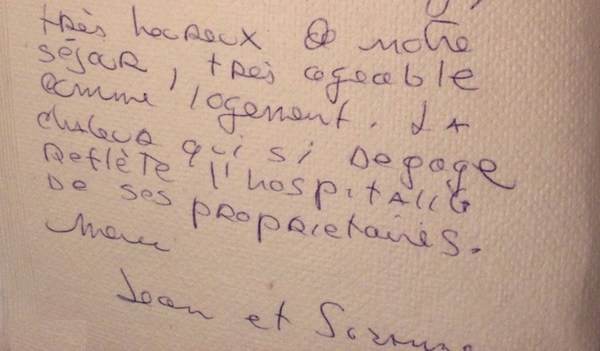 très heureux de notre
séjour, très agréable
comme logement. La
chaleur qui si Degage
Reflète l'hospitalité
De ses propriétaires.
Merci
Jean et Suzanne